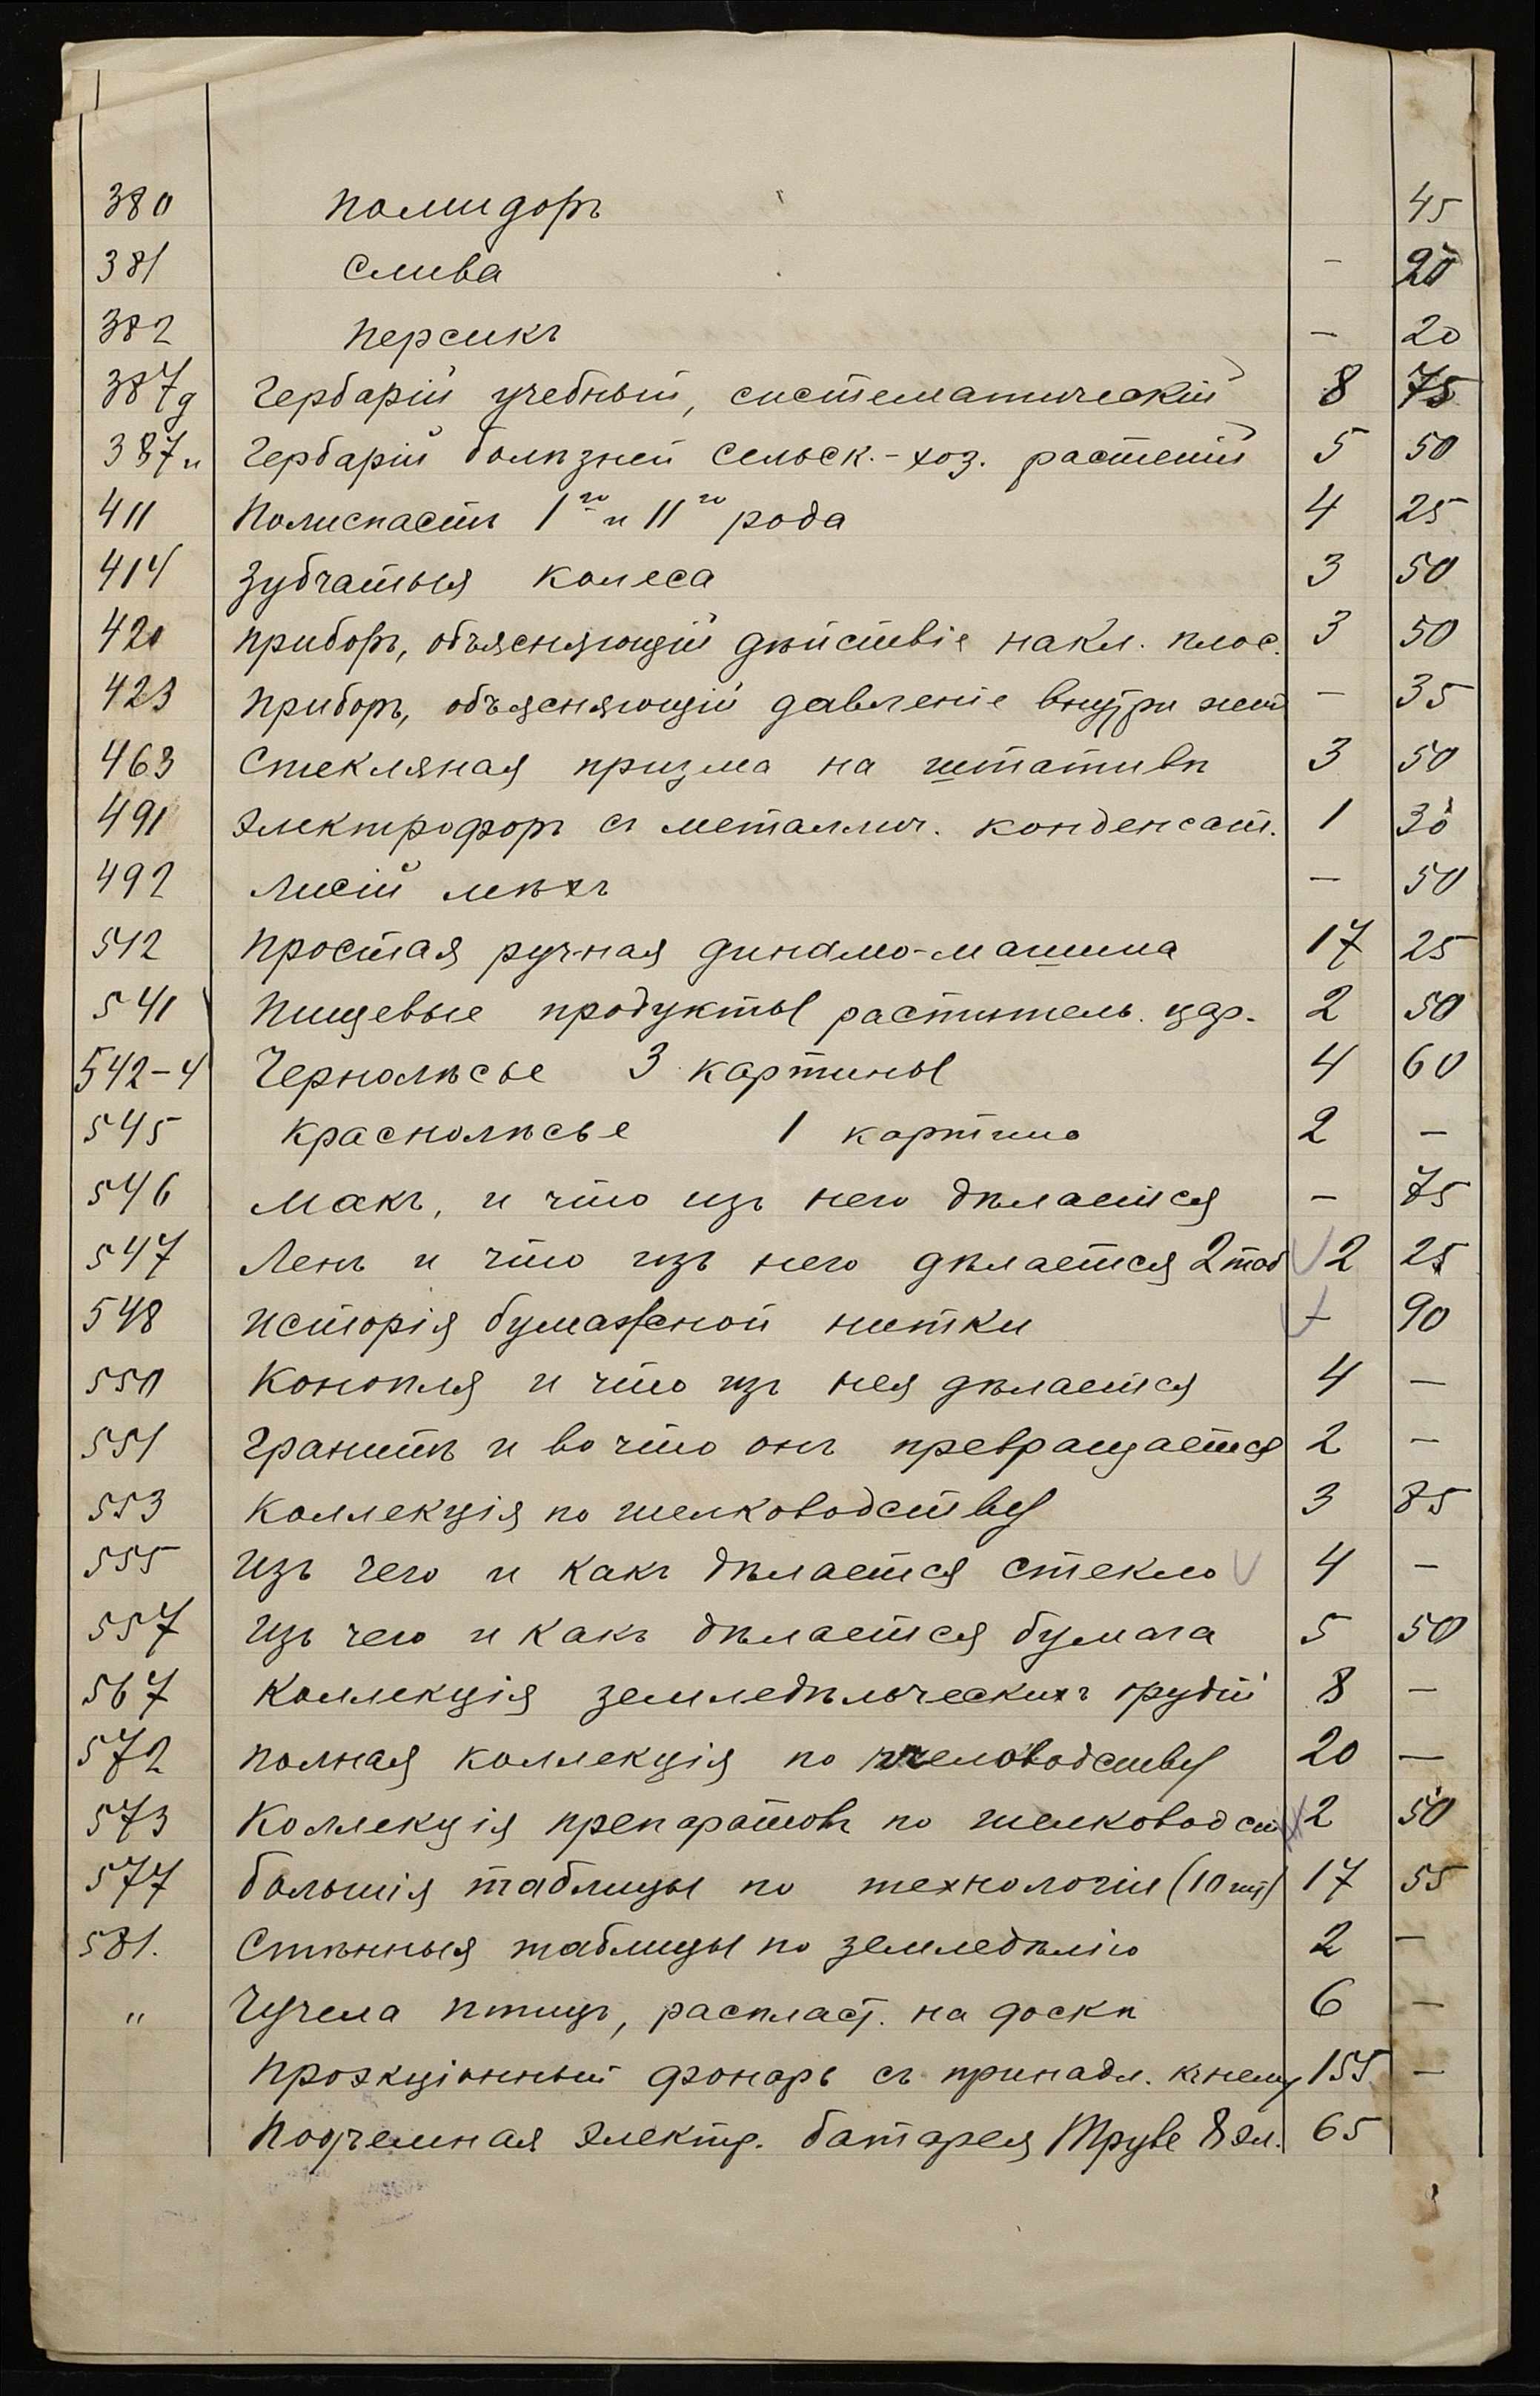 380 Помидоръ 45
381 Слива - 20
382 Персикъ - 20
387д Гербарій учебный, систематическій 8 75
387и Гербарій болѣзней сельск.-хоз. растеній 5 50
411 Полиспастъ 1го и 11го рода 4 25
414 Зубчатыя колеса 3 50
420 Приборъ, объясняющій дѣйствіе накл. плос. 3 50
423 Приборъ, объясняющій давленіе внутри - 35
463 Стекляная призма на штативѣ 3 50
491 Электрофоръ съ металлич. конденсат. 1 30
492 Лисій мѣхъ - 50
512 Простая ручная динамо-машина 17 25
541 Пищевые продукты раститель. цар. 2 50
542-4 Чернолѣсье 3 картины 4 60
545 Краснолѣсье 1 картина 2 -
546 Макъ, и что изъ него дѣлается - 75
547 Ленъ и что изъ него дѣлается 2 таб 2 25
548 Исторія бумажной нитки - 90
550 Конопля и что изъ нея дѣлается 4 -
551 Гранитъ и во что онъ превращается 2 -
553 Коллекція по шелководству 3 85
555 Изъ чего и какъ дѣлается стекло 4 -
557 Изъ чего и какъ дѣлается бумага 5 50
567 Коллекція земледѣльческихъ орудій 8 -
572 Полная коллекція по пчеловодству 20 -
573 Коллекція препаратовъ по шелководст 2 50
577 Большія таблицы по технологіи (10 шт) 17 55
581. Стѣнныя таблицы по земледѣлію 2 -
" Чучела птицъ, распласт. на доскѣ 6 -
Проэкціонный фонарь съ принадл. къ нему 155 -
Подъемная электр. батарея Труве 8 эл. 65